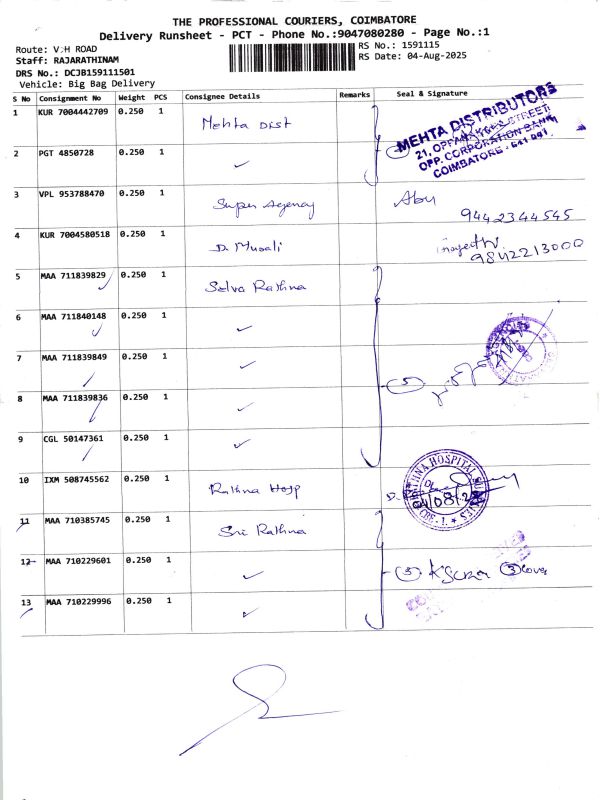 THE PROFESSIONAL COURIERS, COIMBATORE
Delivery Runsheet - PCT - Phone No.:9047080280 - Page No.:1
Route: V.H ROAD
RS No.: 1591115
Staff: RAJARATHINAM
RS Date: 04-Aug-2025
DRS No.: DCJB159111501
Vehicle: Big Bag Delivery
S No Consignment No Weight PCS Consignee Details Remarks Seal & Signature
1 KUR 7004442709 0.250 1 Mehta Dist
MEHTA DISTRIBUTORS
21, OPP. STREET
OPP. CORPORATION BANK
COIMBATORE - 641 001
2 PGT 4850728 0.250 1 ✓
3 VPL 953788470 0.250 1 Super Agency Abu
9442344545
4 KUR 7004580518 0.250 1 D. Murali
9842213000
5 MAA 711839829 0.250 1 Selva Rathna
6 MAA 711840148 0.250 1 ✓
7 MAA 711839849 0.250 1 ✓
8 MAA 711839836 0.250 1 ✓
5
9 CGL 50147361 0.250 1 ✓
10 IXM 508745562 0.250 1 Rathna Hosp
RATHNA HOSPITAL
CBE - 1
11 MAA 710385745 0.250 1 Sri Rathna
12 MAA 710229601 0.250 1 ✓ 3 3 cover
13 MAA 710229996 0.250 1 ✓